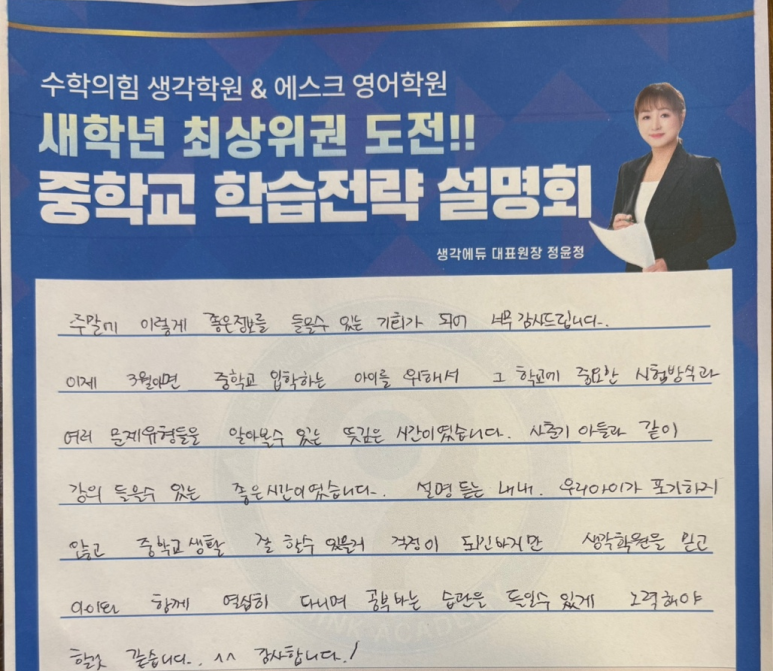 수학의힘 생각학원 & 에스크 영어학원
새학년 최상위권 도전!!
중학교 학습전략 설명회
생각에듀 대표원장 정윤정
주말에 이렇게 좋은정보를 들을수 있는 기회가 되어 너무 감사드립니다.
이제 3월이면 중학교 입학하는 아이를 위해서 그 학교에 중요한 시험방식과
여러 문제유형들을 알아볼수 있는 뜻깊은 시간이였습니다. 사춘기 아들과 같이
강의 들을수 있는 좋은시간이였습니다. 설명 듣는 내내. 우리아이가 포기하지
않고 중학교생활 잘 할수 있을거 걱정이 되긴하지만 생각학원을 믿고
아이와 함께 열심히 다니며 공부하는 습관을 들일수 있게 노력해야
할것 같습니다. ^^ 감사합니다.!
THINK ACADEMY